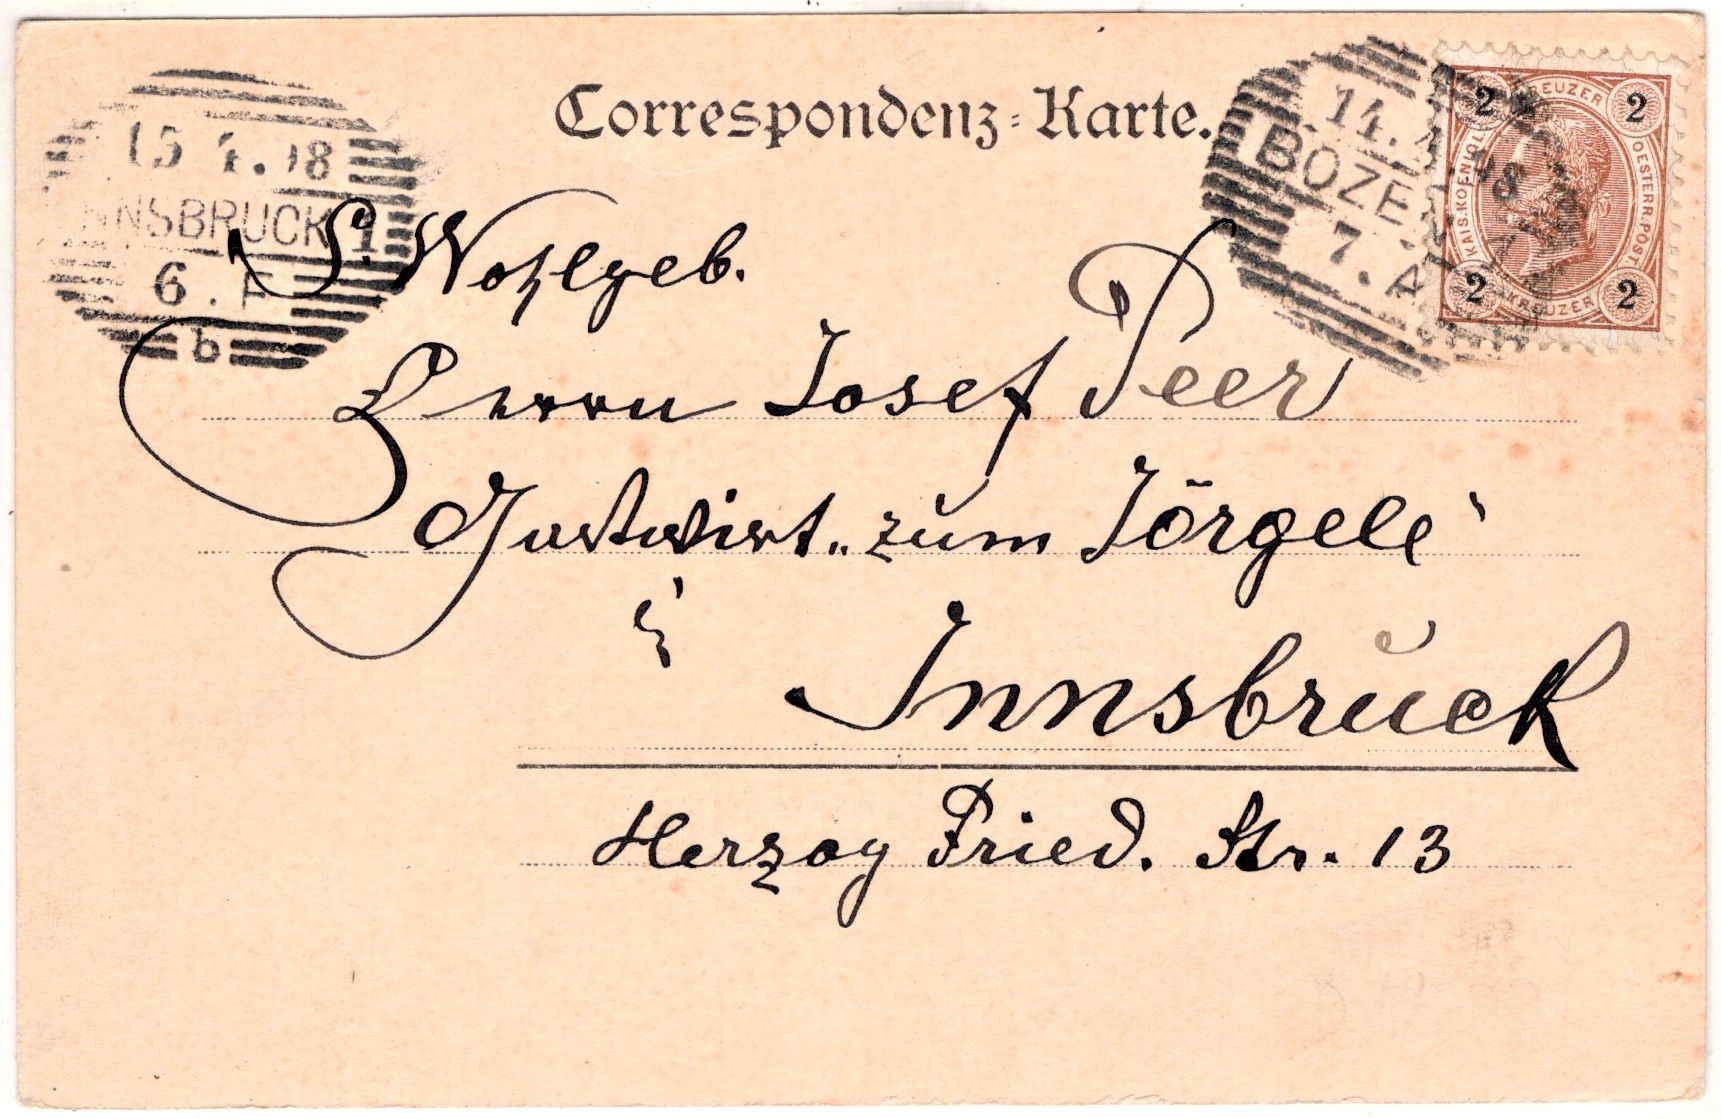 Correspondenz-Karte.
15 4. 98
INNSBRUCK 1
6. F
b
14. 4. 98
BOZEN
7. A
2 KREUZER 2
KAIS. KOENIGL. OESTERR. POST
2 KREUZER 2
S. Wohlgeb.
Herrn Josef Peer
Gastwirt „zum Jörgele‘
in
Innsbruck
Herzog Fried. Str. 13